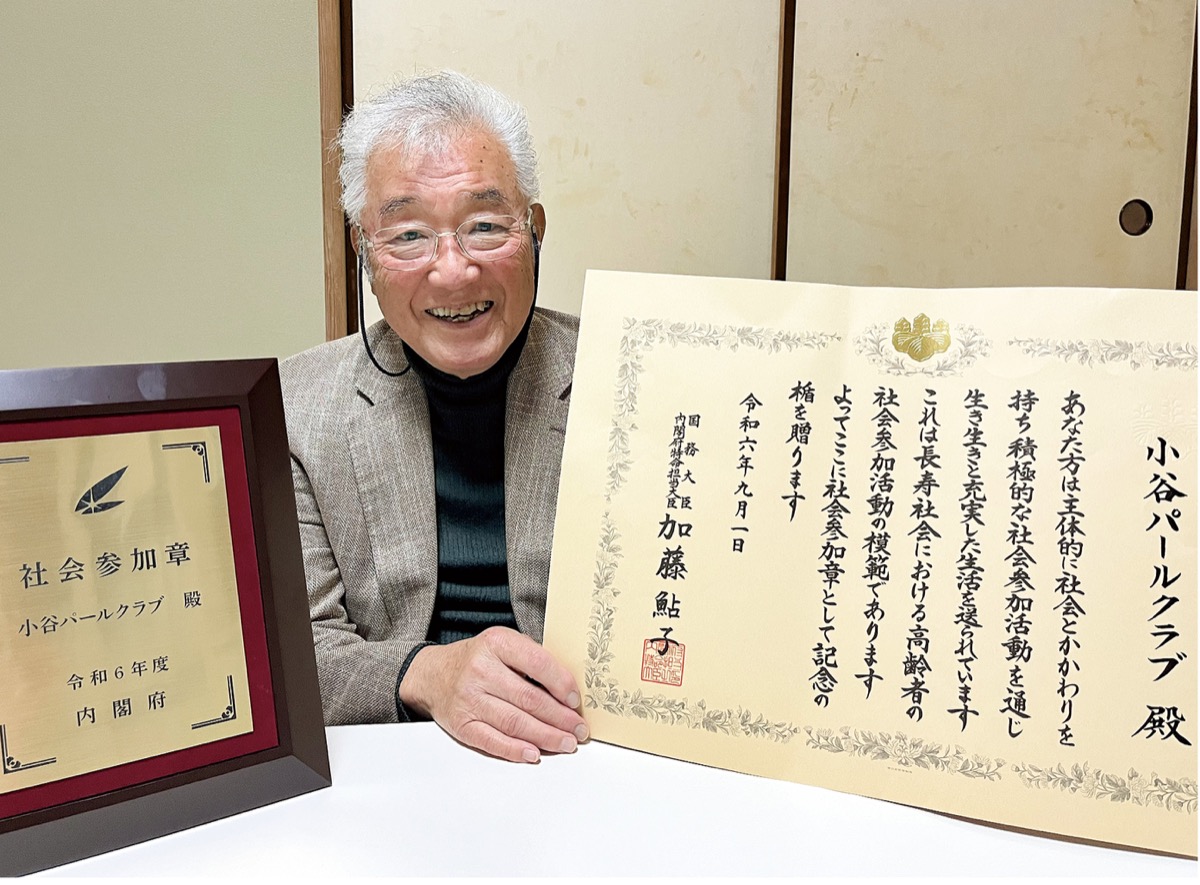 社会参加章
小谷パールクラブ 殿
令和6年度
内閣府
小谷パールクラブ 殿
あなた方は主体的に社会とかかわりを
持ち積極的な社会参加活動を通じ
生き生きと充実した生活を送られています
これは長寿社会における高齢者の
社会参加活動の模範であります
よってここに社会参加章として記念の
楯を贈ります
令和六年九月一日
国務大臣
内閣府特命担当大臣
加藤鮎子